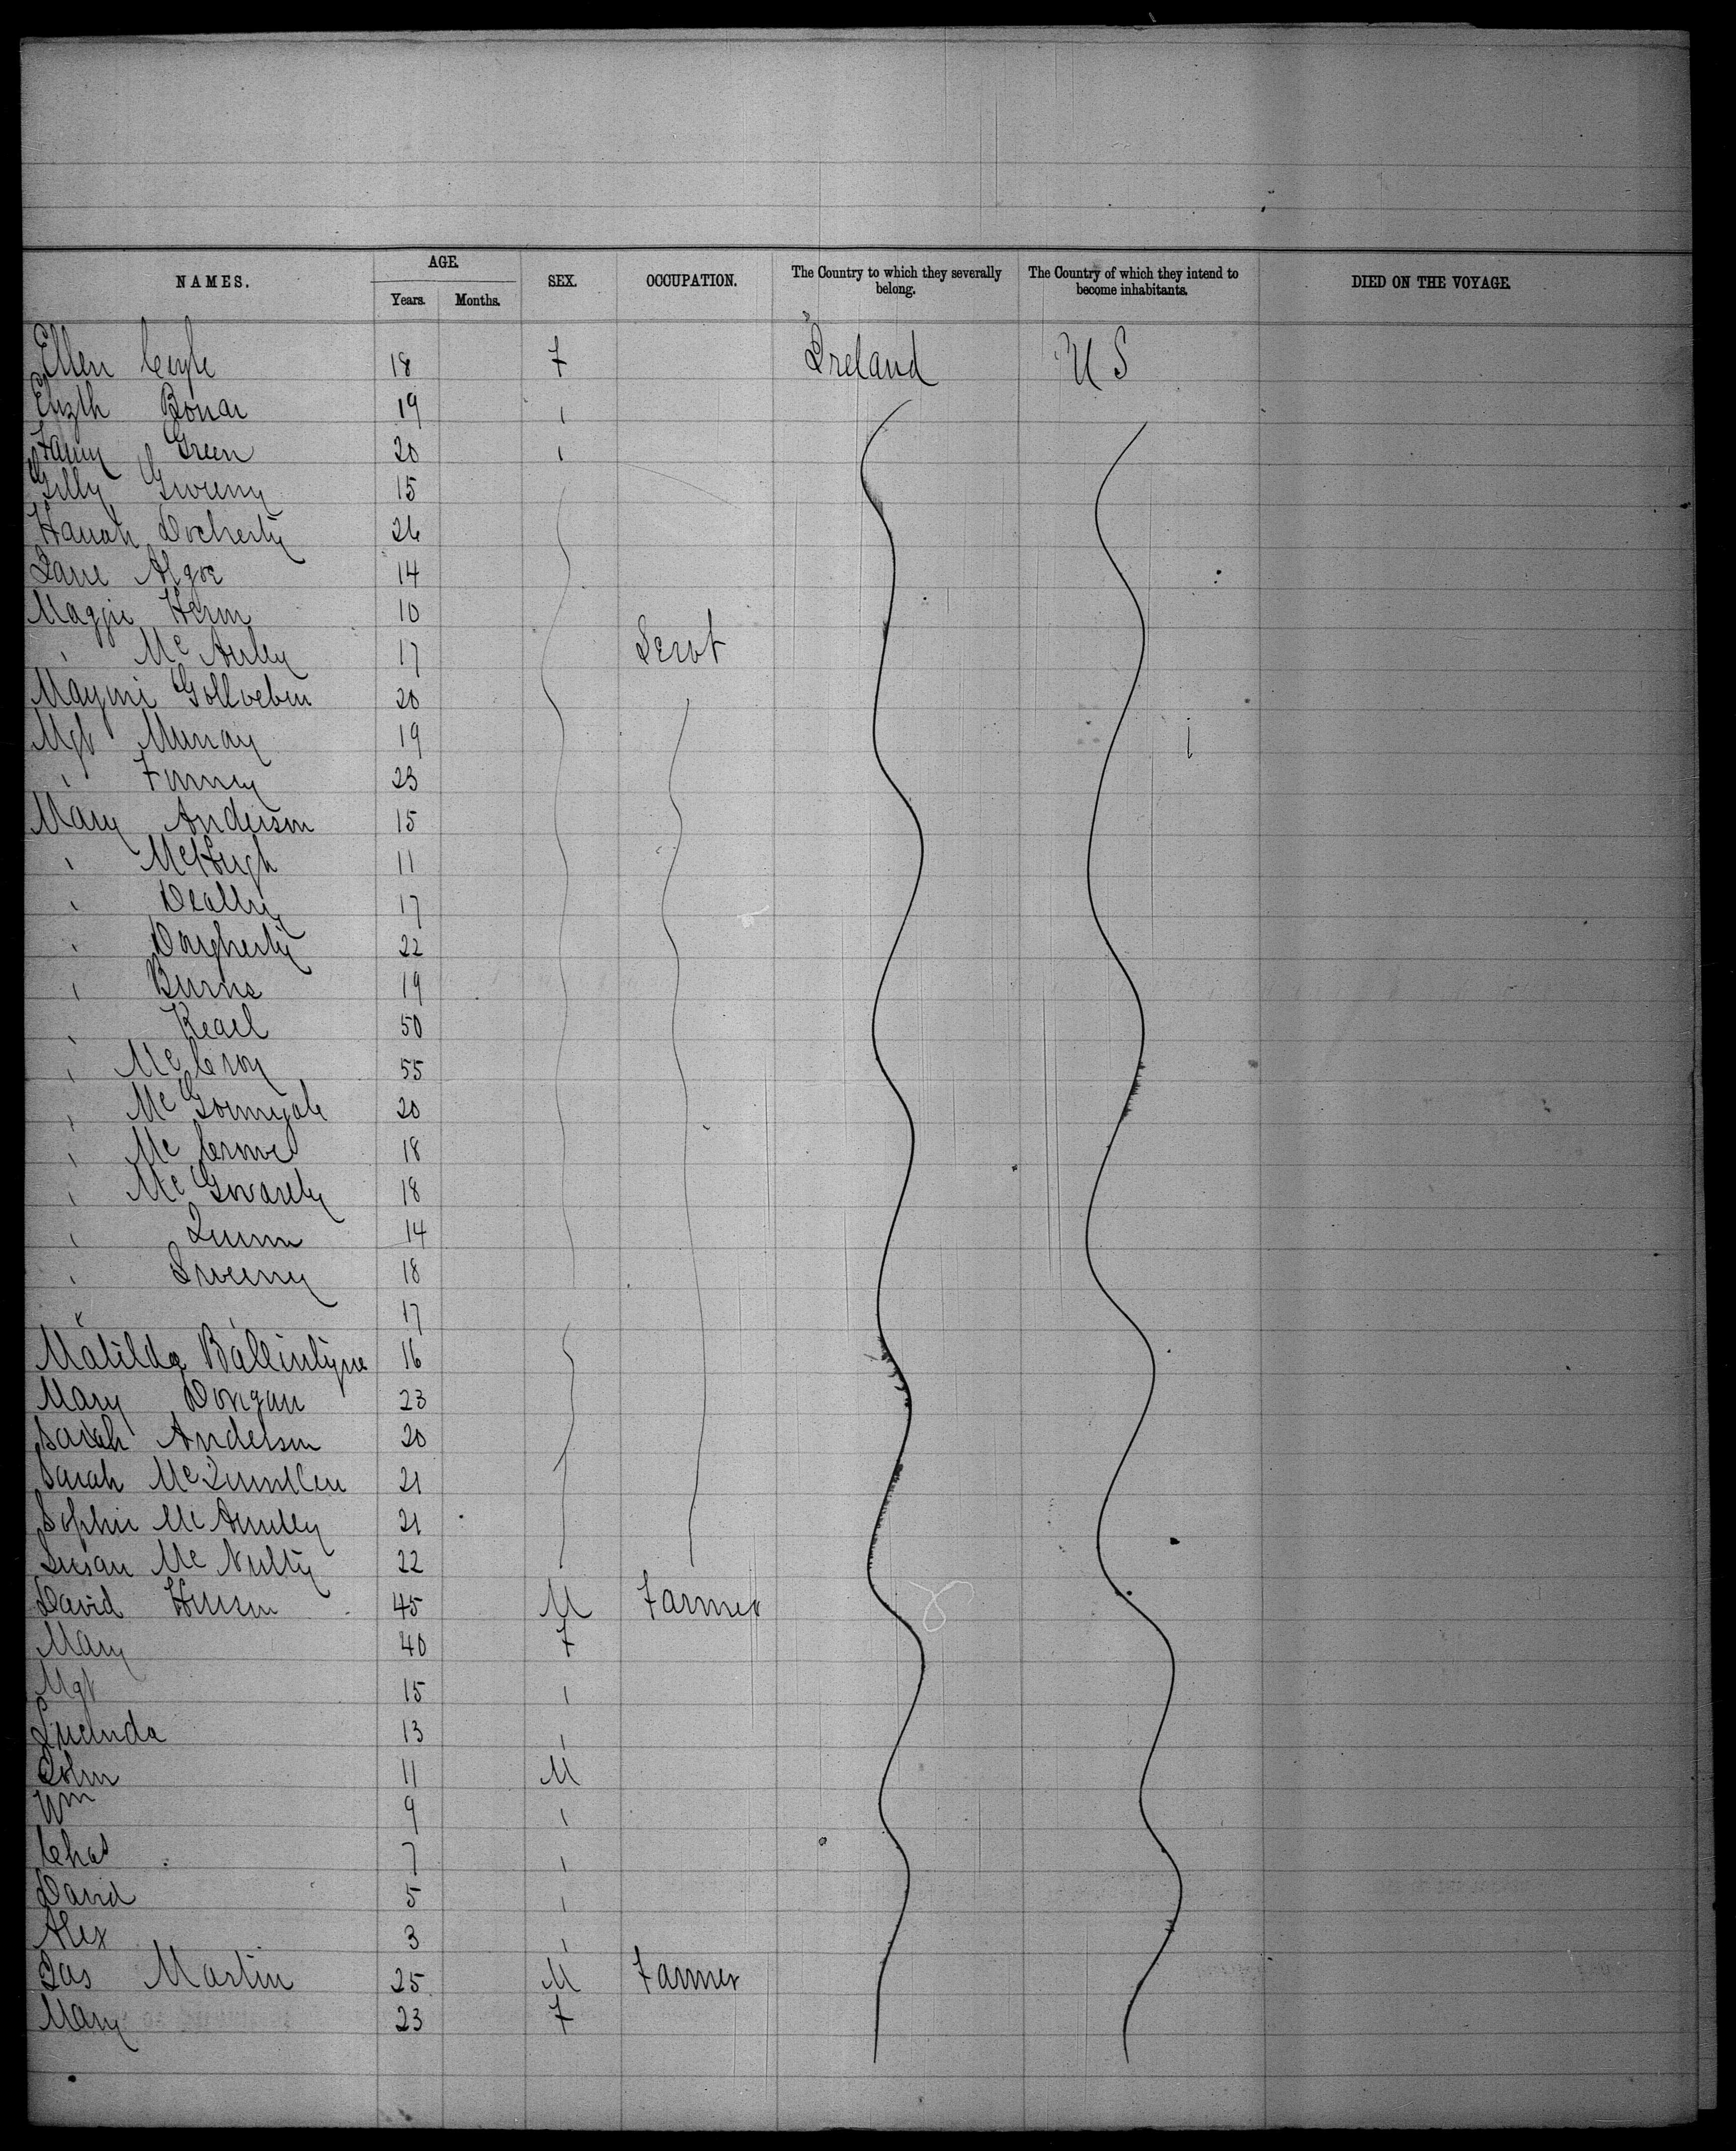 NAMES. AGE. SEX. OCCUPATION. The Country to which they severally belong. The Country of which they intend to become inhabitants. DIED ON THE VOYAGE.
Years. Months.
Ellen 18 F Ireland US
Elizth Bonar 19 "
Fanny Green 20 "
Gilly 15
Hanah Docherty 26
Jane Algoe 14
Maggie 10
" Mc Auley 17 Servt
20
Mgt Murray 19
" 23
Mary Anderson 15
" McHugh 11
" 17
" Dougherty 22
" Burns 19
" 50
" Mc Croy 55
" Mc 20
" Mc 18
" Mc 18
" Quinn 14
" Sweeny 18
" " 17
Matilda Ballintyne 16
Mary Dongan 23
Sarah Anderson 20
Sarah McQuinllen 21
Sophie Mc 21
Susan Mc Nulty 22
David 45 M Farmer
Mary 40 F
Mgt 15 "
Lucinda 13 "
John 11 M
Wm 9 "
Chas 7 "
David 5 "
Alex 3 "
Jas Martin 25 M Farmer
Mary 23 F